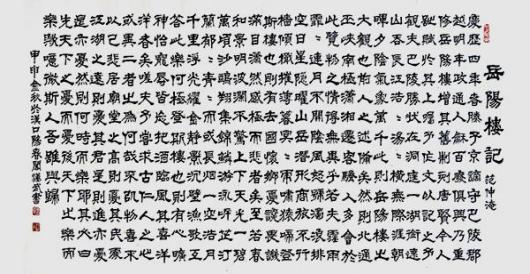 岳陽樓記 范仲淹
慶歷四年春滕子京謫守巴陵郡
越明年政通人和百廢俱興乃重
修岳陽樓增其舊制刻唐賢今人
詩賦於其上屬予作文以記之予
觀夫巴陵勝狀在洞庭一湖銜遠
山吞長江浩浩湯湯橫無際涯朝
暉夕陰氣象萬千此則岳陽樓之
大觀也前人之述備矣然則北通
巫峽南極瀟湘遷客騷人多會於
此覽物之情得無異乎若夫淫雨
霏霏連月不開陰風怒號濁浪排
空日星隱曜山岳潛形商旅不行
檣傾楫摧薄暮冥冥虎嘯猿啼登
斯樓也則有去國懷鄉憂讒畏譏
滿目蕭然感極而悲者矣至若春
和景明波瀾不驚上下天光一碧
萬頃沙鷗翔集錦鱗游泳岸芷汀
蘭郁郁青青而或長烟一空皓月
千里浮光耀金靜影沉璧漁歌互
答此樂何極登斯樓也則有心曠
神怡寵辱皆忘把酒臨風其喜洋
洋者矣嗟夫予嘗求古仁人之心
或異二者之為何哉不以物喜不
以己悲居廟堂之高則憂其民處
江湖之遠則憂其君是進亦憂退亦
憂然則何時而樂耶其必曰
先天下之憂而憂後天下之樂而
樂歟噫微斯人吾誰與歸
甲申金秋於漢口陽春閣謙武書